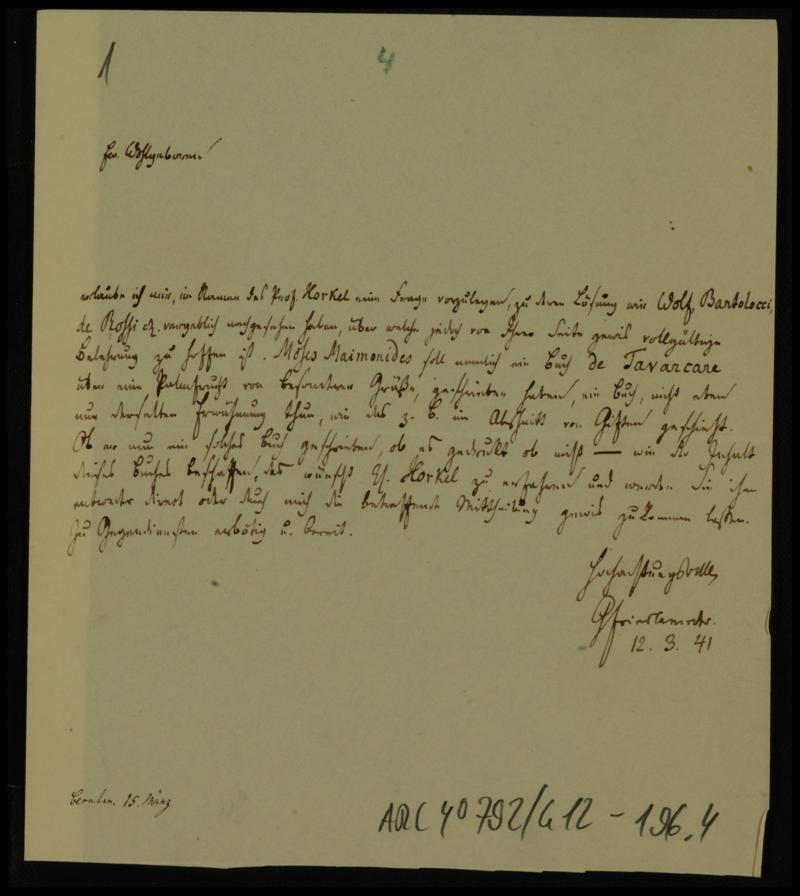 1
4
Ew. Wohlgeboren
erlaube ich mir, im Namen des Prof. Horkel eine Frage vorzulegen, zu deren Lösung wir Wolf, Bartolocci,
de Rossi &. vergeblich nachgesehen haben, über welche jedoch von Ihrer Seite gewis vollgültige
Belehrung zu hoffen ist. Moses Maimonides soll nemlich ein Buch de Tavarcare
über eine Palmfrucht von besonderer Größe, geschrieben haben, ein Buch, nicht eben
nur derselben Erwähnung thun, wie das z. B. im Abschnitt von Giften geschieht.
Ob er nun ein solches Buch geschrieben, ob es gedruckt ob nicht — wie der Inhalt
dieses Buches beschaffen, das wünscht H. Horkel zu erfahren und werden Sie ihm
entweder direct oder durch mich die betreffende Mittheilung gewis zukommen lassen.
Zu Gegendiensten erbötig u. bereit.
Hochachtungsvoll
Gfriedlaender.
12. 3. 41
15. März
ARC 4º 792/G12 - 196.4